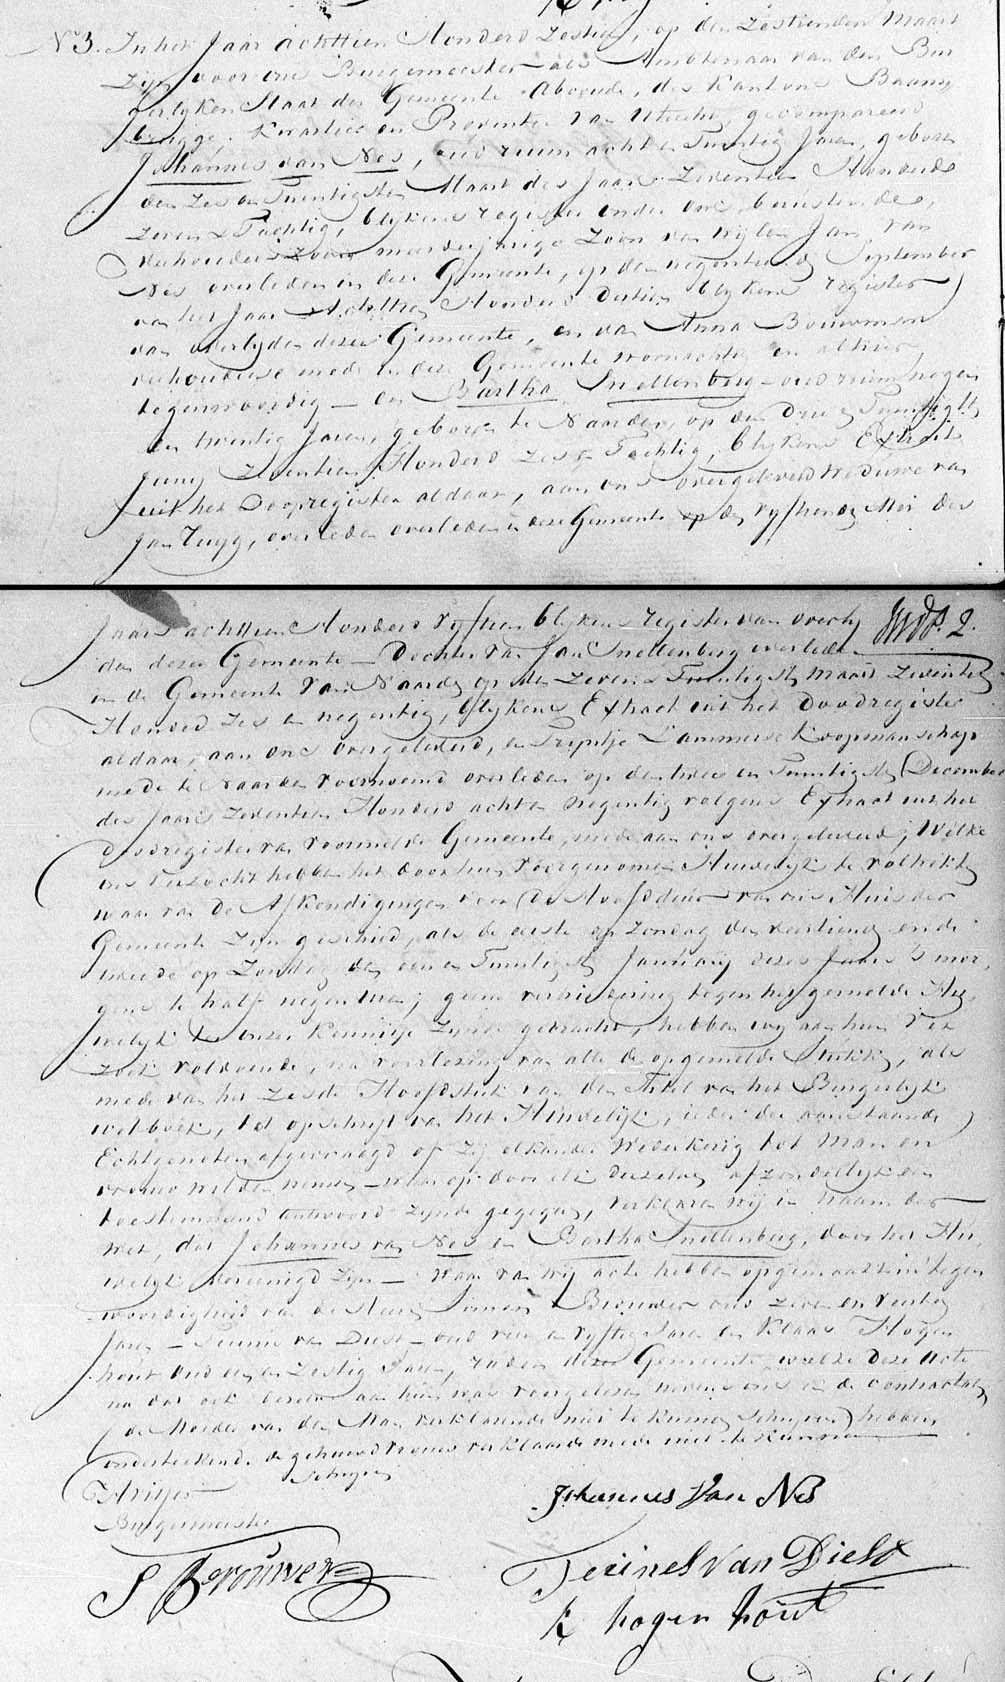 N° 3. In het Jaar achttien Honderd Zestien, op den Zestienden Maart
Zijn voor ons Burgemeester als Ambtenaar van den Bur
gerlyken Staat der Gemeente Abcoude, des Kantons Baam
brugge, Kwartier en Provintie van Utrecht, gecompareerd
Johannes van Nes, oud ruim acht en Twintig Jaren, geboren
den Zes en Twintigsten Maart des Jaars Zeventien Honderd
Zeven en Tachtig, blykens register onder ons berustende,
meerderjarige Zoon van wylen Jan van
Nes overleden in deze Gemeente, op den negentienden September
van het Jaar Achttien Honderd Dertien blykens register
van overlyden dezer Gemeente, en van Anna Bouwman
mede in deze Gemeente woonachtig en alhier
tegenwoordig — en Bartha Snellenberg oud ruim negen
en twintig Jaren, geboren te Naarden, op den Drie en Twintigsten
Juny Zeventien Honderd Zes en Tachtig, blykens Extract
uit het Doopregister aldaar, aan ons overgeleverd Weduwe van
Jan Tuyg, overleden in deze Gemeente op den vyftienden Mei des
Jaars achttien Honderd Vyftien blykens register van overly
den dezer Gemeente — Dochter van Jan Snellenberg overleden
in de Gemeente van Naarden op den Zeven en Twintigsten Maart Zeventien
Honderd Zes en negentig, blykens Extract uit het Doodregister
aldaar, aan ons overgeleverd, en Trijntje Lammerse Koopmanschap
mede te Naarden voornoemd overleden op den twee en Twintigsten December
des Jaars Zeventien Honderd acht en Negentig volgens Extract uit het
Doodregister van voormelde Gemeente, mede aan ons overgeleverd; Welke
ons verzocht hebben het door hun voorgenomen Huwelyk te voltrekken
waar van de Afkondigingen voor de Hoofddeur van ons Huis der
Gemeente Zijn geschied, als de eerste op Zondag den veertienden en de
tweede op Zondag den een en Twintigsten January dezes Jaars 's mor
gens te half negen Ure; geene verhindering tegen het gemelde Hu
welyk te onzer kennisse Zijnde gebracht, hebben wy aan hun Ver
zoek voldoende, na voorlezing van alle de opgemelde Stukken, als
mede van het Zesde Hoofdstuk van den Titel van het Burgerlyk
wetboek, tot opschrift van het Huwelijk, ieder der aanstaande
Echtgenoten afgevraagd of Zij elkander Wederkerig tot Man en
vrouw wilden nemen — waar op door elk derzelver afzonderlijk een
toestemmend antwoord Zynde gegeven, verklaren wij in naam der
wet, dat Johannes van Nes en Bartha Snellenberg, door het Hu
welyk vereenigd Zyn — Waar van wij acte hebben opgemaakt in tegen
woordigheid van de Heeren Simon Brouwer oud Zeven en
Jaren — Teunis van Diest — oud en vyftig Jaren en Klaas Hogen
hout Oud en Zestig Jaren, dezer Gemeente, welke deze acte
na dat ook dezelve aan hun was voorgelezen nevens ons en de contractanten
(de Moeder van den Man verklarende niet te kunnen Schryven) hebben
onderteekend. de gehuwde Vrouw verklaarde mede niet te kunnen
Schryven
Burgemeester
Johannes Van Nes
S Brouwer
Teunes Van Diest
K hogen hout